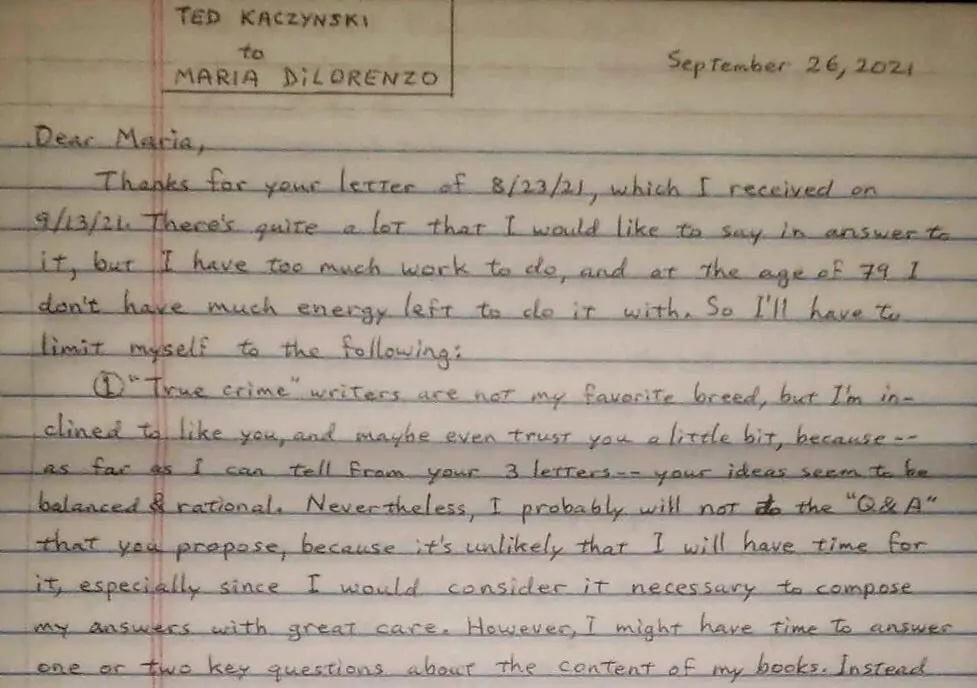 TED KACZYNSKI
to
MARIA DiLORENZO
September 26, 2021
Dear Maria,
Thanks for your letter of 8/23/21, which I received on
9/13/21. There's quite a lot that I would like to say in answer to
it, but I have too much work to do, and at the age of 79 I
don't have much energy left to do it with. So I'll have to
limit myself to the following:
① "True crime" writers are not my favorite breed, but I'm in-
clined to like you, and maybe even trust you a little bit, because --
as far as I can tell from your 3 letters -- your ideas seem to be
balanced & rational. Nevertheless, I probably will not do the "Q&A"
that you propose, because it's unlikely that I will have time for
it, especially since I would consider it necessary to compose
my answers with great care. However, I might have time to answer
one or two key questions about the content of my books. Instead